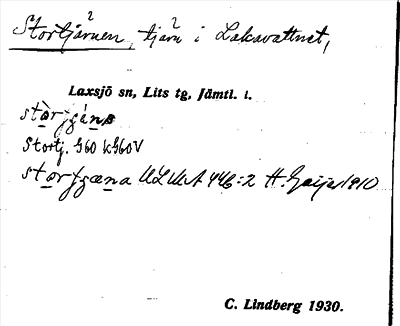 Stortjärnen, tjärn i Laksavattnet,
Laxsjö sn, Lits tg, Jämtl. l.
Stortj. G60 kG60V
ULMA 446:2 H. Geijer 1910
C. Lindberg 1930.